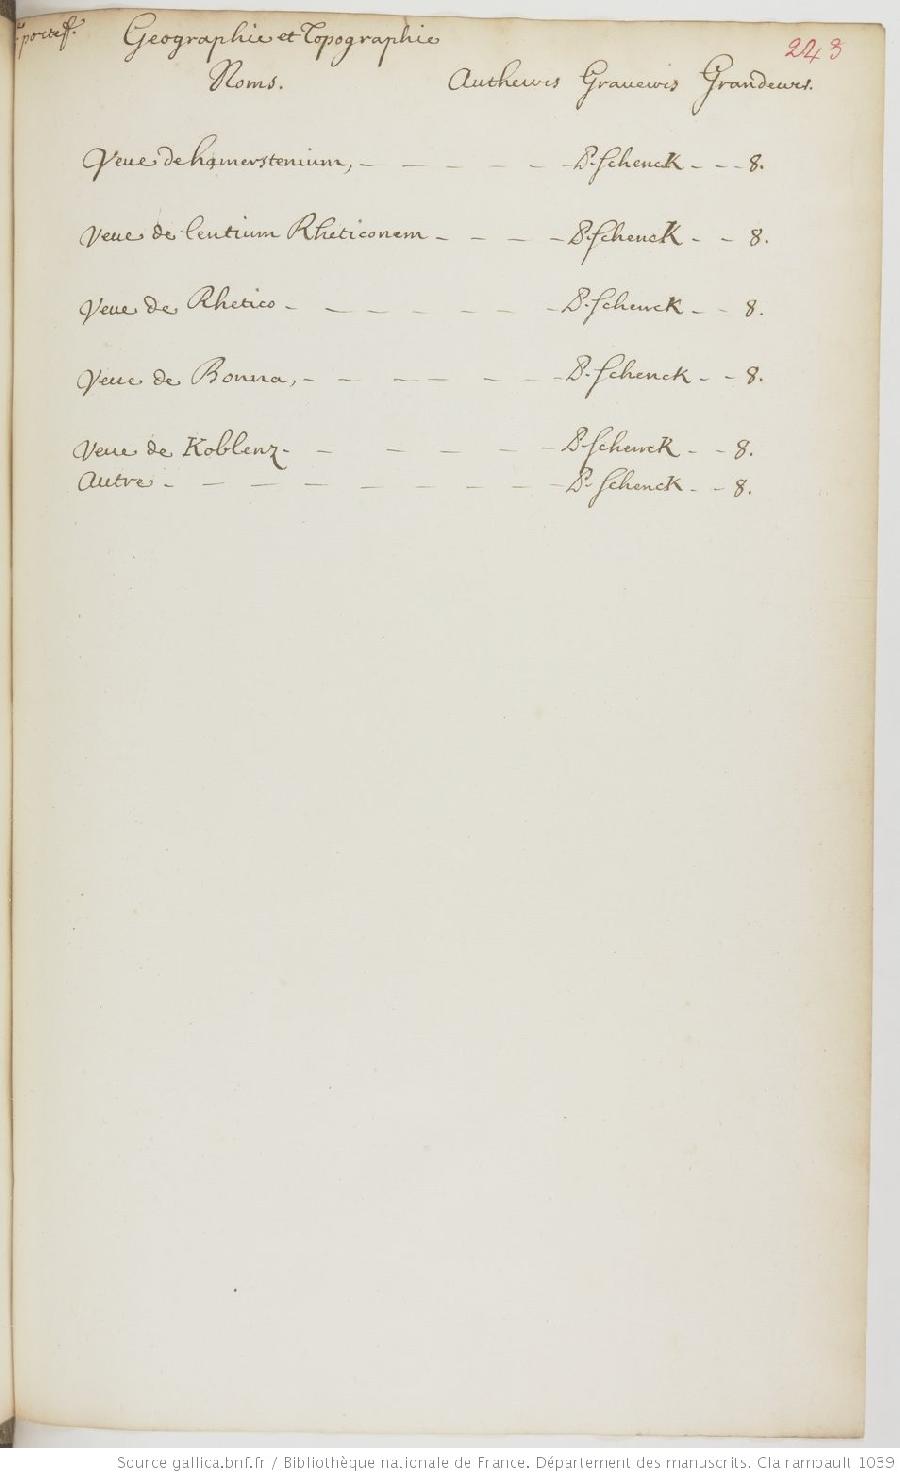 portef. Geographie et Topographie 223
Noms. Autheurs Graueurs Grandeurs.
Veue de hamerstenium, - - - - - P. Schenck - - - 8.
Veue de lentium Rheticonem - - - - P. Schenck - - 8.
Veue de Rhetico - - - - - - P. Schenck - - 8.
Veue de Bonna, - - - - - - P. Schenck - - 8.
Veue de Koblenz - - - - - - P. Schenck - - 8.
Autre - - - - - - - - - P. Schenck - - 8.
Source gallica.bnf.fr / Bibliothèque nationale de France. Département des manuscrits. Clairambault 1039